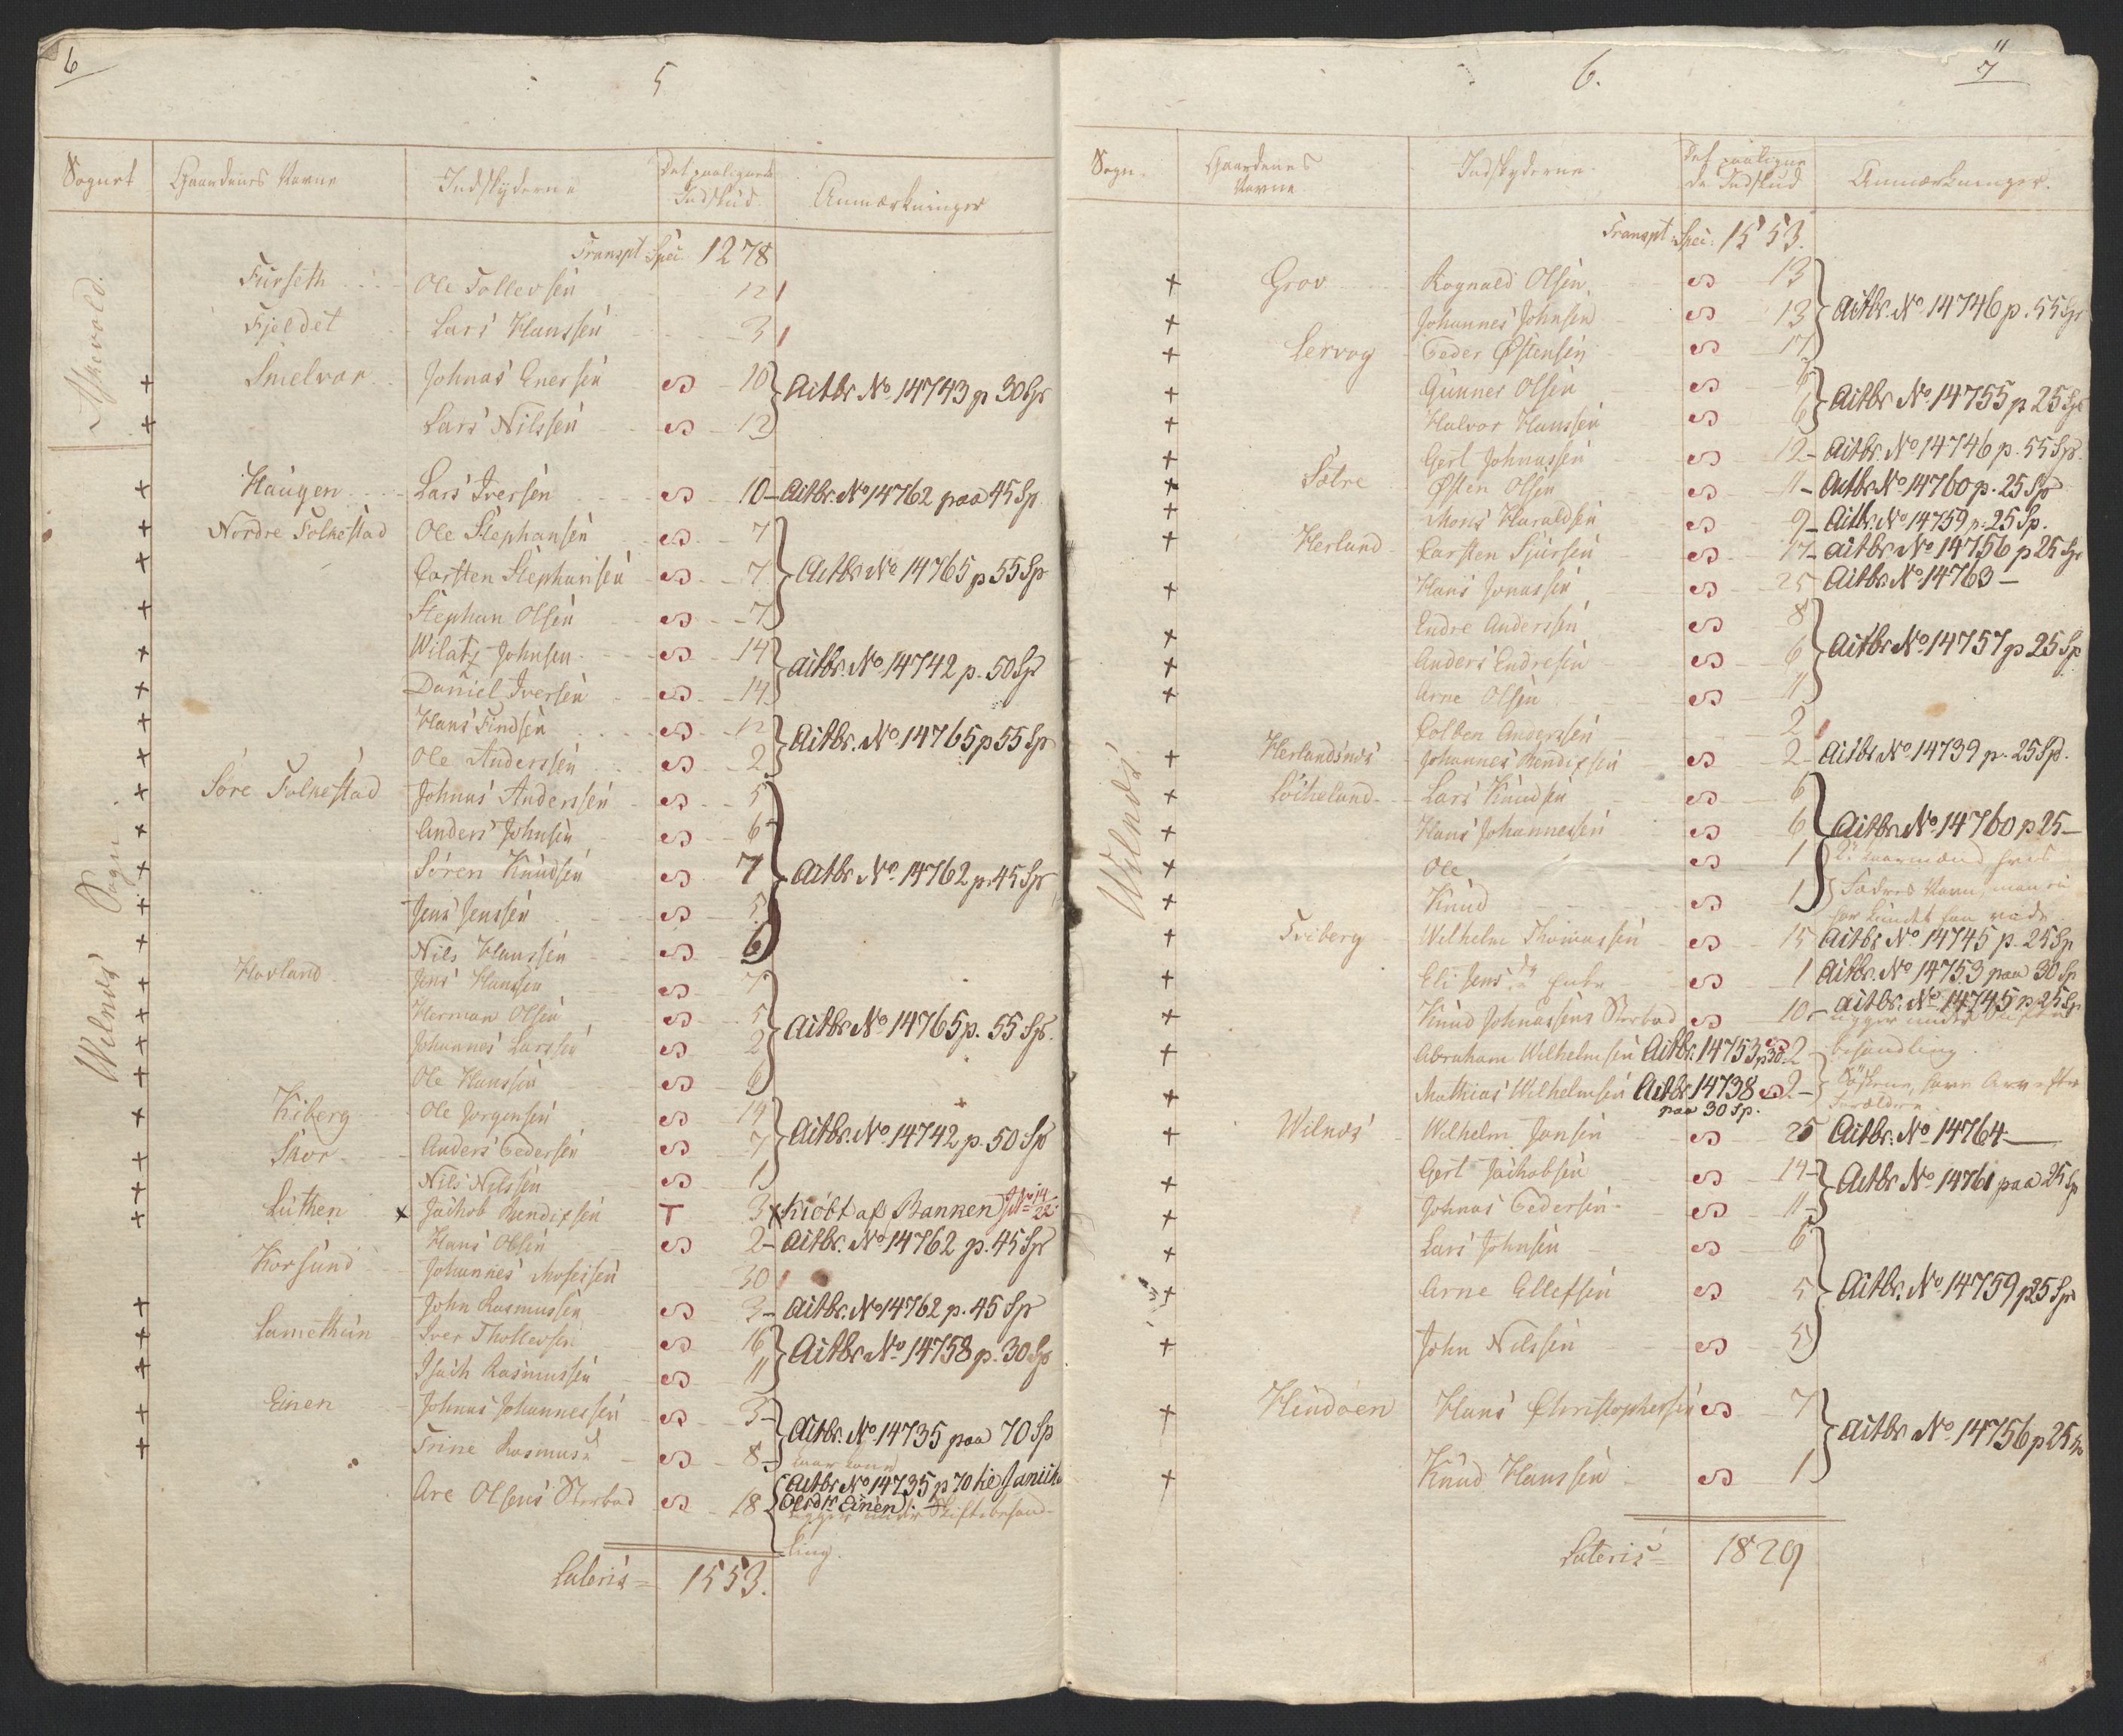 6
5
Sognet Gaardenes Navne Indskyderne Det paalignede Indskud Anmærkninger
Askevold.
Transpt Spei. 1278
Furseth Ole Tollevsen 12
Fjeldet Lars Hanssen 3
+ Smelvær Johnas Enersen 10 Actbr No 14743 p 30 Sp
+ Lars Nilssen 12
Wilnæs Sogn
+ Haugen Lars Iversen 10 Actbr. No 14762 paa 45 Sp.
+ Nordre Folkestad Ole Stephansen 7
+ Carsten Stephansen 7 Actbr No 14765 p 55 Sp
+ Stephan Olsen 7
+ Wilatz Johnsen 14 Actbr. No 14742 p. 50 Sp
+ Daniel Iversen 14
+ Hans Findsen 12 Actbr. No 14765 p 55 Sp
+ Ole Anderssen 2
+ Søre Folkestad Johnas Anderssen 5
+ Anders Johnsen 6
+ Søren Knudsen 7 Actbr No 14762 p. 45 Sp
+ Jens Jenssen 5
+ Nils Hanssen 6
+ Hovland Jens Hanssen 7
+ Herman Olsen 5 Actbr No 14765 p. 55 Sp.
+ Johannes Larssen 2
+ Ole Hanssen 6
+ Kiberg Ole Jørgensen 14
+ Skor Anders Pedersen 7 Actbr. No 14742 p. 50 Sp
+ Nils Nilssen 1
+ Luthen x Jackob Bendixsen T 3 x Kiöbt af Banken J No 14/22
Hans Olsen 2 Actbr. No 14762 p. 45 Sp
Korsund Johannes Mosessen 30
+ John Rasmussen 3 Actbr. No 14762 p. 45 Sp
+ Lamethun Iver Thollevsen 16 Actbr No 14758 p. 30 Sp
+ Isach Rasmussen 11
+ Einen Johnas Johannessen 5 Actbr. No 14735 paa 70 Sp
+ Trine Rasmusd 8
Are Olsens Sterbod 18 Actbr No 14735 p 70
Einen
ligger under Skiftebehand-
ling.
Lateris = 1553.
6.
11
7
Sogn. Gaardenes Navne Indskyderne Det paalignede Indskud Anmærkninger.
Transpt Spei: 1553.
Wilnæs
+ Grov Rognald Olsen 13
+ Johannes Johnsen 13 Actbr. No 14746 p. 55 Sp
+ Lervog Peder Østensen 17
+ Gunner Olsen Actbr No 14755 p 25 Sp
+ Halvor Hanssen 6
+ Gert Johnassen 12 Actbr. No 14746 p. 55 Sp.
+ Sætre Østen Olsen 11 Actbr No 14760 p. 25 Sp
+ Mons Haraldsen 9 Actbr. No 14759 p. 25 Sp.
+ Herland Carsten Sjursen 17 Actbr No 14756 p 25 Sp
+ Hans Jonassen 25 Actbr. No 14763 —
+ Endre Anderssen 8
+ Anders Endresen 6 Actbr No 14757 p 25 Sp
+ Arne Olsen 11
Colben Anderssen 2
+ Herlandsnæs Johannes Bendixsen 2 Actbr No 14739 p. 25 Sp.
+ Löikeland Lars Knudsen 6
+ Hans Johannessen 6 Actbr. No 14760 p 25 —
+ Ole 1
+ Knud 1 Fædres Navn man ei
har kundet faa vide
+ Tviberg Wilhelm Thomassen 15 Actbr No 14745 p. 25 Sp
+ Eli Jensdr Enke 1 Actbr. No 14753 paa 30 Sp
+ Knud Johnassens Sterbod 10 Actbr. No 14745 p 25 Sp
ligger under Skifte
behandling.
+ Abraham Wilhelmsen Actbr. 14753 p 30 2
+ Mathias Wilhelmsen Actbr 14738 2 Södskene, have Arv efter
paa 30 Sp. Forældre
+ Wilnæs Wilhelm Jonsen 25 Actbr. No 14764 —
+ Gert Jackobsen 14 Actbr No 14761 paa 25 Sp
+ Johnas Pedersen 11
+ Lars Johnsen 6
+ Arne Ellefsen 5 Actbr. No 14759 p 25 Sp
+ John Nilssen 5
+ Hindöen Hans Christophersen 7 Actbr No 14756 p 25 Sp
+ Knud Hanssen 1
Lateris = 1829